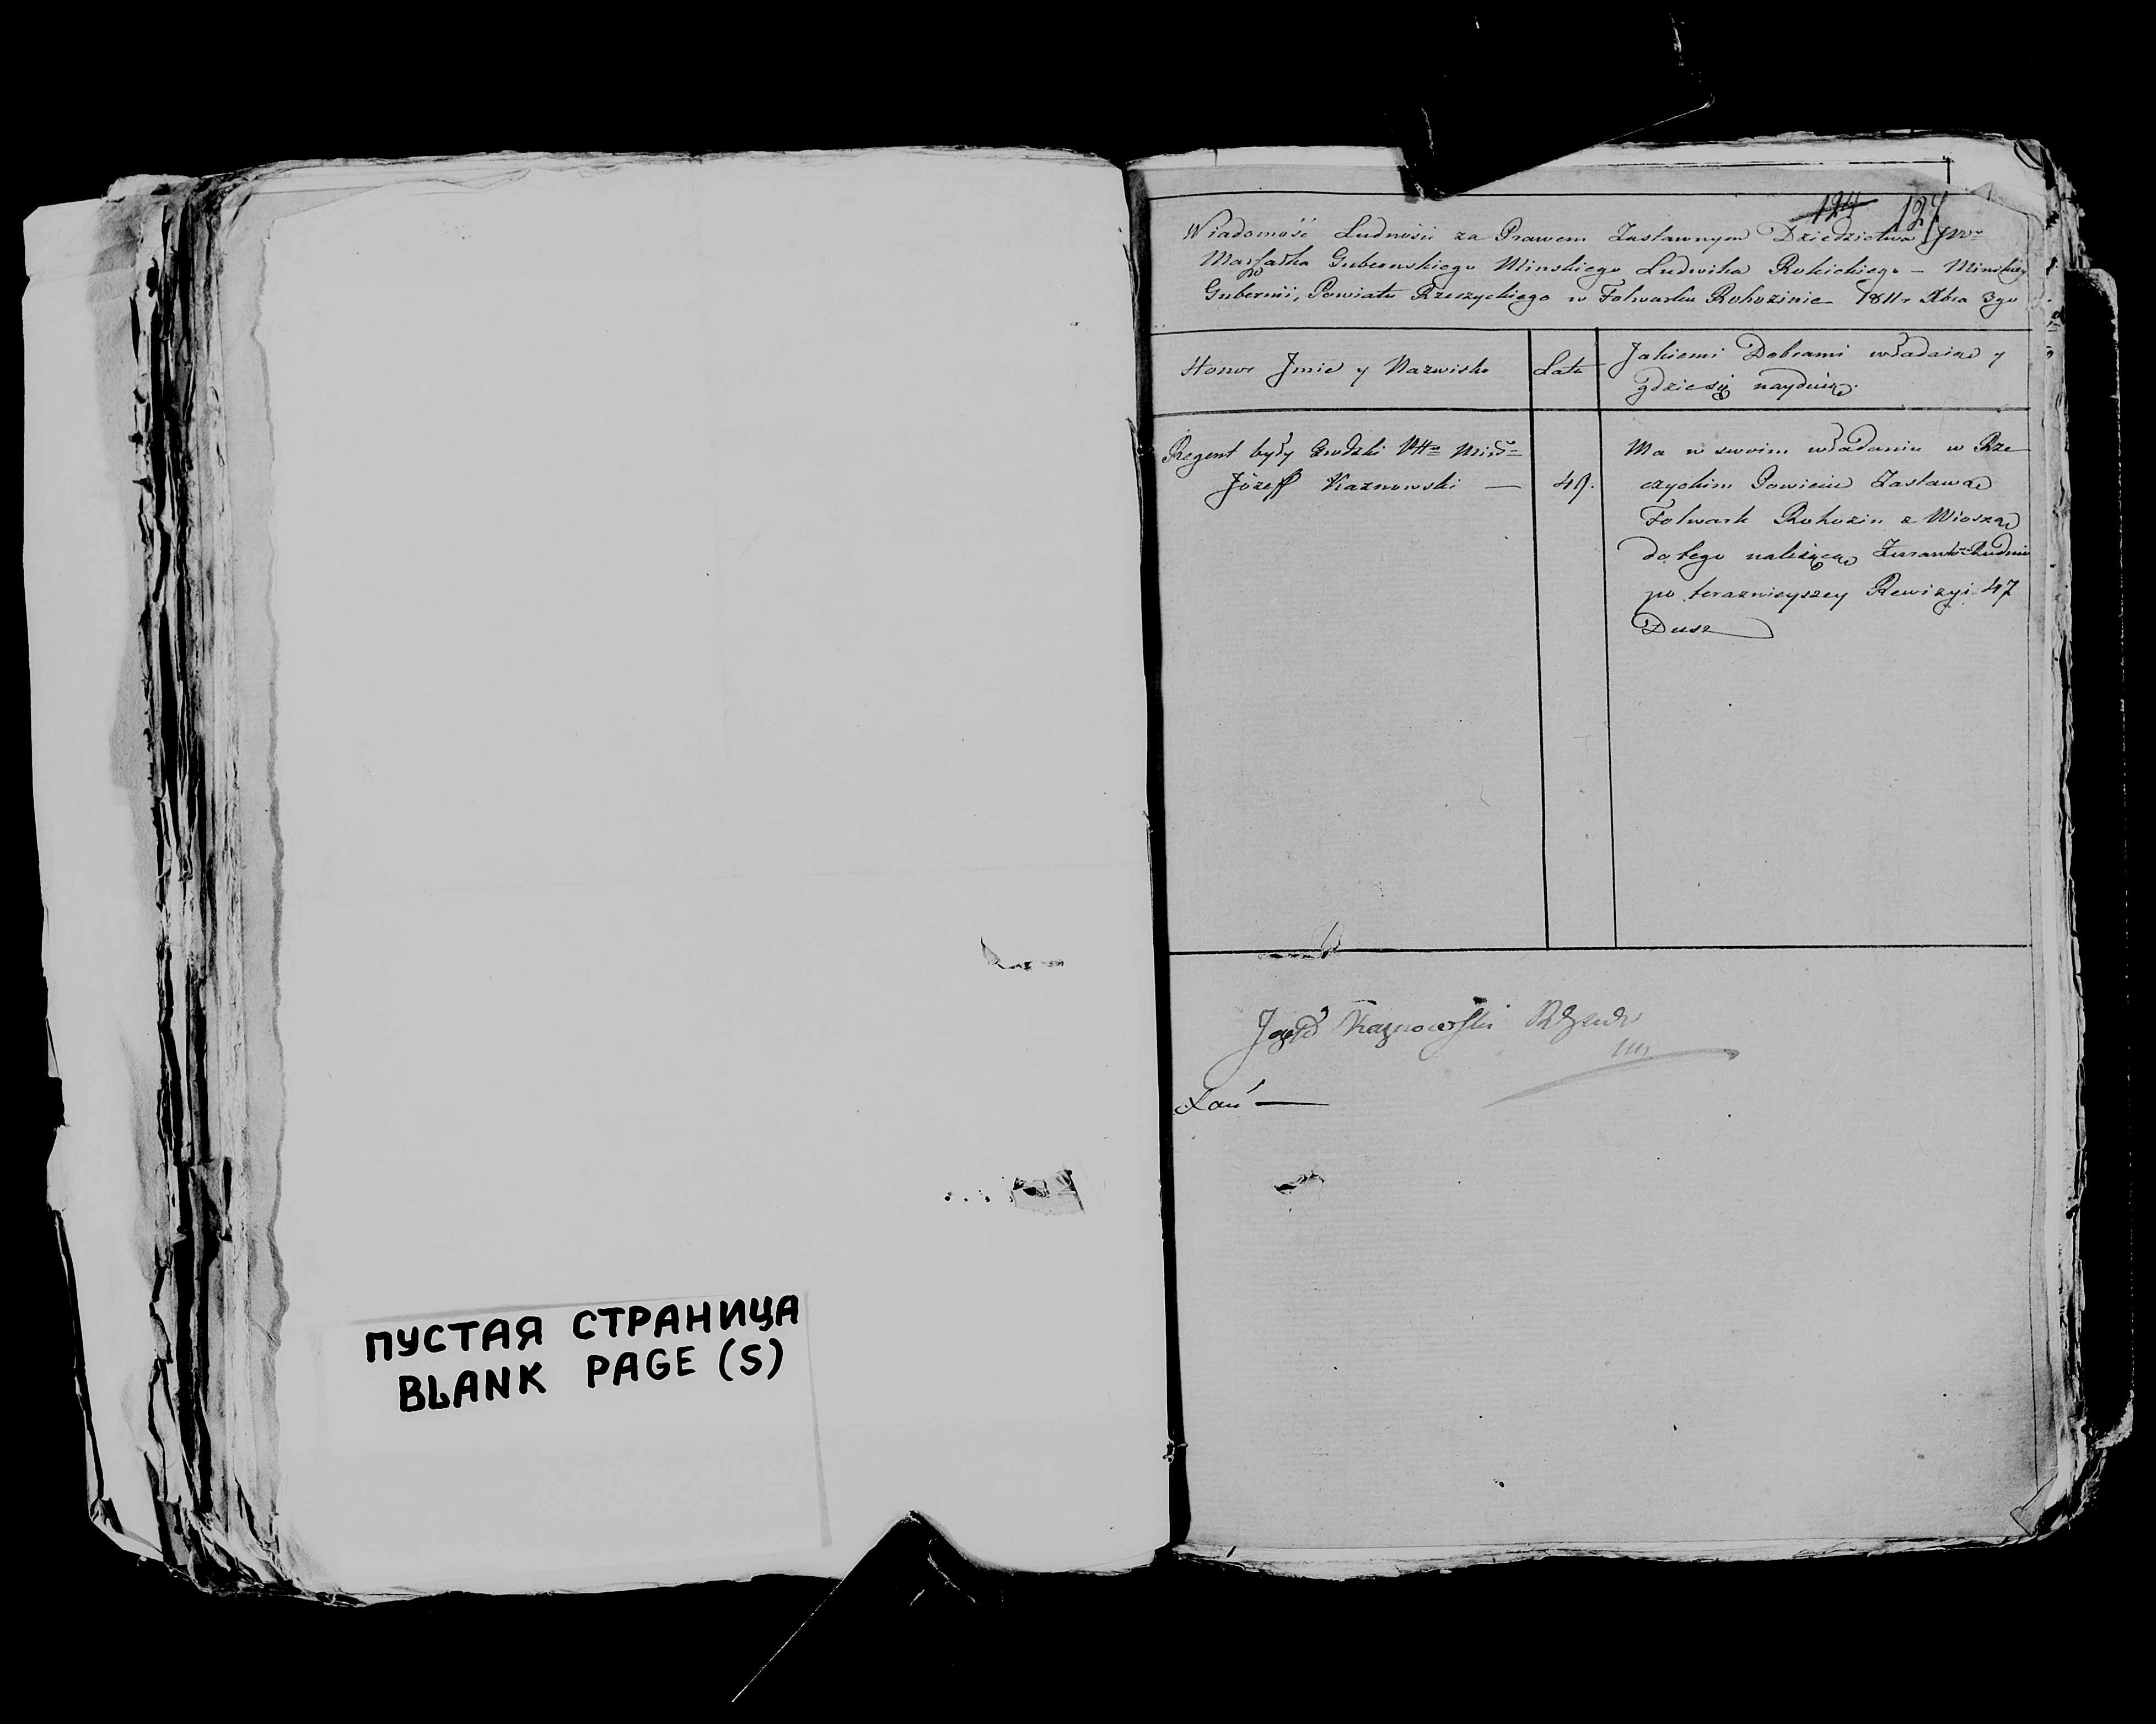 ПУСТАЯ СТРАНИЦА
BLANK PAGE (S)
124 127
Wiadomość Ludności za Prawem Zastawnym Dziedzictwa JW
Marszałka Gubernskiego Minskiego Ludwika Rokickiego – Minskiey
Gubernii, Powiatu Rzeczyckiego w Folwarku Rohozinie 1811 Xbra 3go
Honor Jmie y Nazwisko
Lata
Jakiemi Dobrami władaią y
gdzie się nayduią.
Regent były Grodzki Wtta Mińs
Józeff Kaznowski —
49.
Ma w swoim władaniu w Rze
czyckim Powiecie Zastawą
Folwark Rohozin z Wioską
do tego należącą Rudnia
po teraznieyszey Rewizyi 47
Dusz
Jozeff Kaznowski